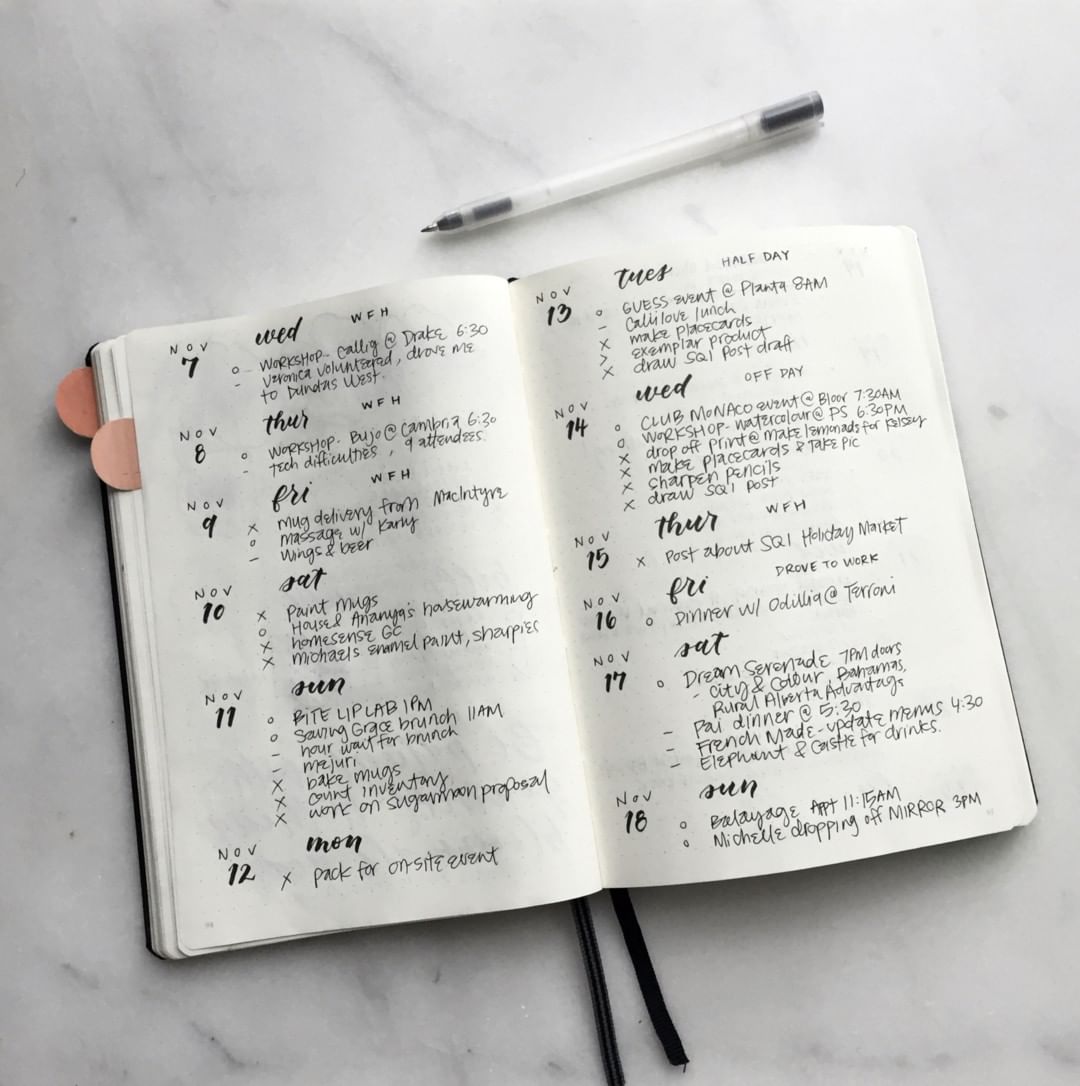 NOV 7 wed WFH
o WORKSHOP- Callig @ Drake 6:30
– Veronica volunteered, drove me
to Dundas West.
NOV 8 thur WFH
o WORKSHOP- Bujo @ Cambria 6:30
– tech difficulties, 9 attendees.
NOV 9 fri WFH
x mug delivery from MacIntyre
o massage w/ Karly
– Wings & beer
NOV 10 sat
x Paint mugs
o House & Ananya's housewarming
x homesense GC
x michaels enamel paint, sharpies
NOV 11 sun
o BITE LIP LAB 1PM
o Saving Grace brunch 11AM
– hour wait for brunch
– mejuri
x bake mugs
x count inventory
x work on sugarmoon proposal
NOV 12 mon
x pack for on-site event
NOV 13 tues HALF DAY
o GUESS event @ Planta 8AM
– Callilove lunch
x make placecards
> exemplar product
x draw SQ1 Post draft
NOV 14 wed OFF DAY
o CLUB MONACO event @ Bloor 7:30AM
o WORKSHOP- watercolour @ PS 6:30PM
x drop off print @ make lemonade for Kelsey
x make placecards & take pic
x sharpen pencils
x draw SQ1 post
NOV 15 thur WFH
x Post about SQ1 Holiday Market
NOV 16 fri DROVE TO WORK
o Dinner w/ Odillia @ Terroni
NOV 17 sat
o Dream Serenade 7PM doors
– City & Colour, Bahamas,
Rural Alberta Advantage
– Pai dinner @ 5:30
– French Made- update menus 4:30
– Elephant & Castle for drinks.
NOV 18 sun
o Balayage Appt 11:15AM
o Michelle dropping off MIRROR 3PM